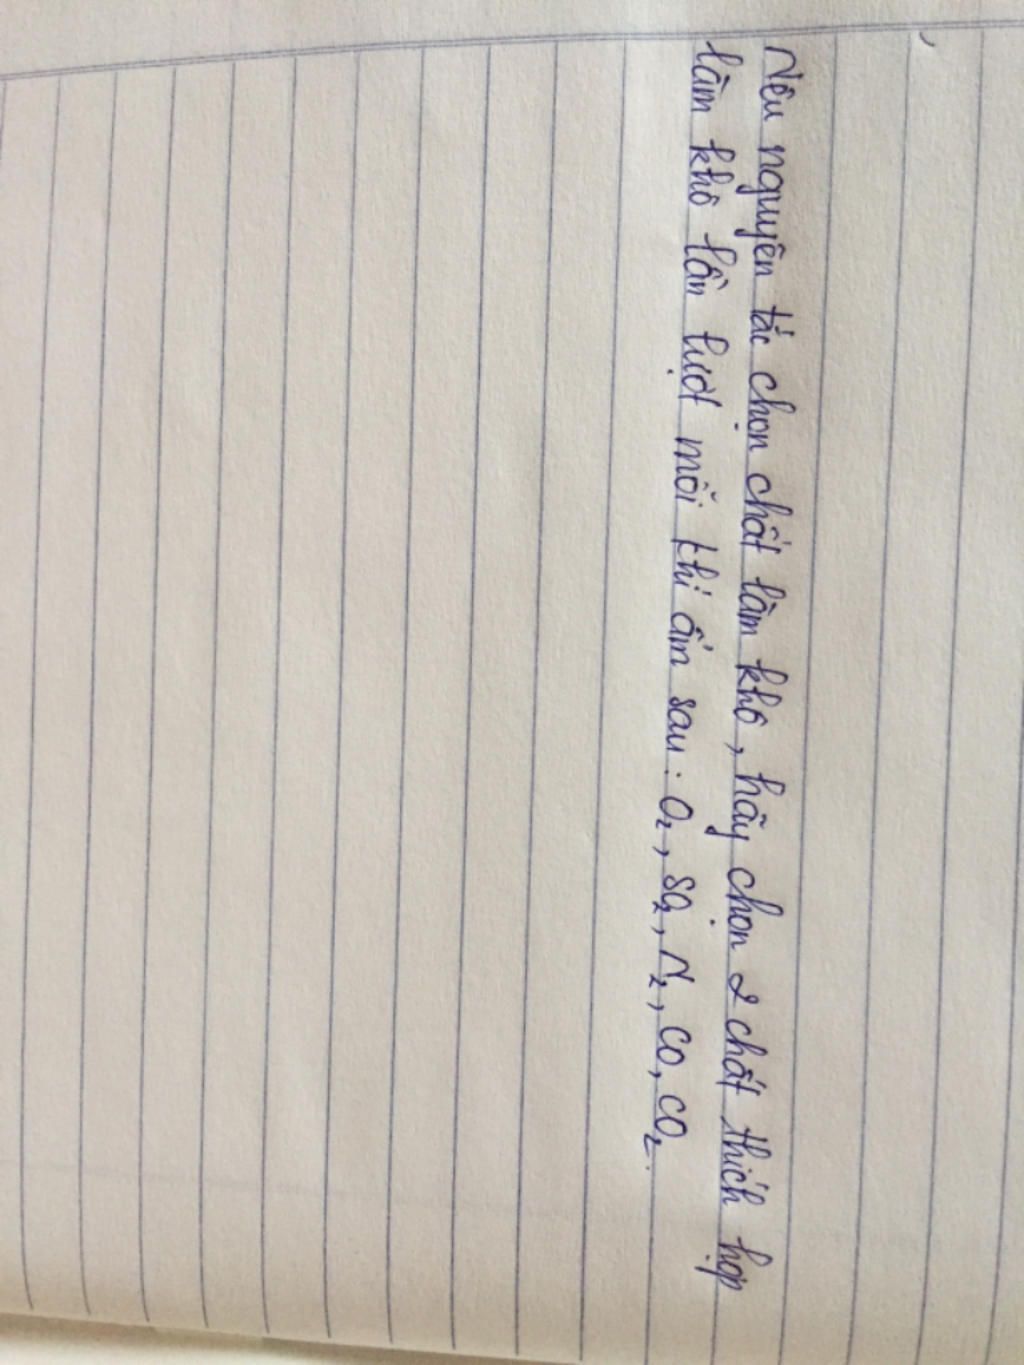 Nêu nguyên tắc chọn chất làm khô, hãy chọn 2 chất thích hợp
làm khô lần lượt mỗi khí ẩm sau: O₂, SO₂, N₂, CO, CO₂.